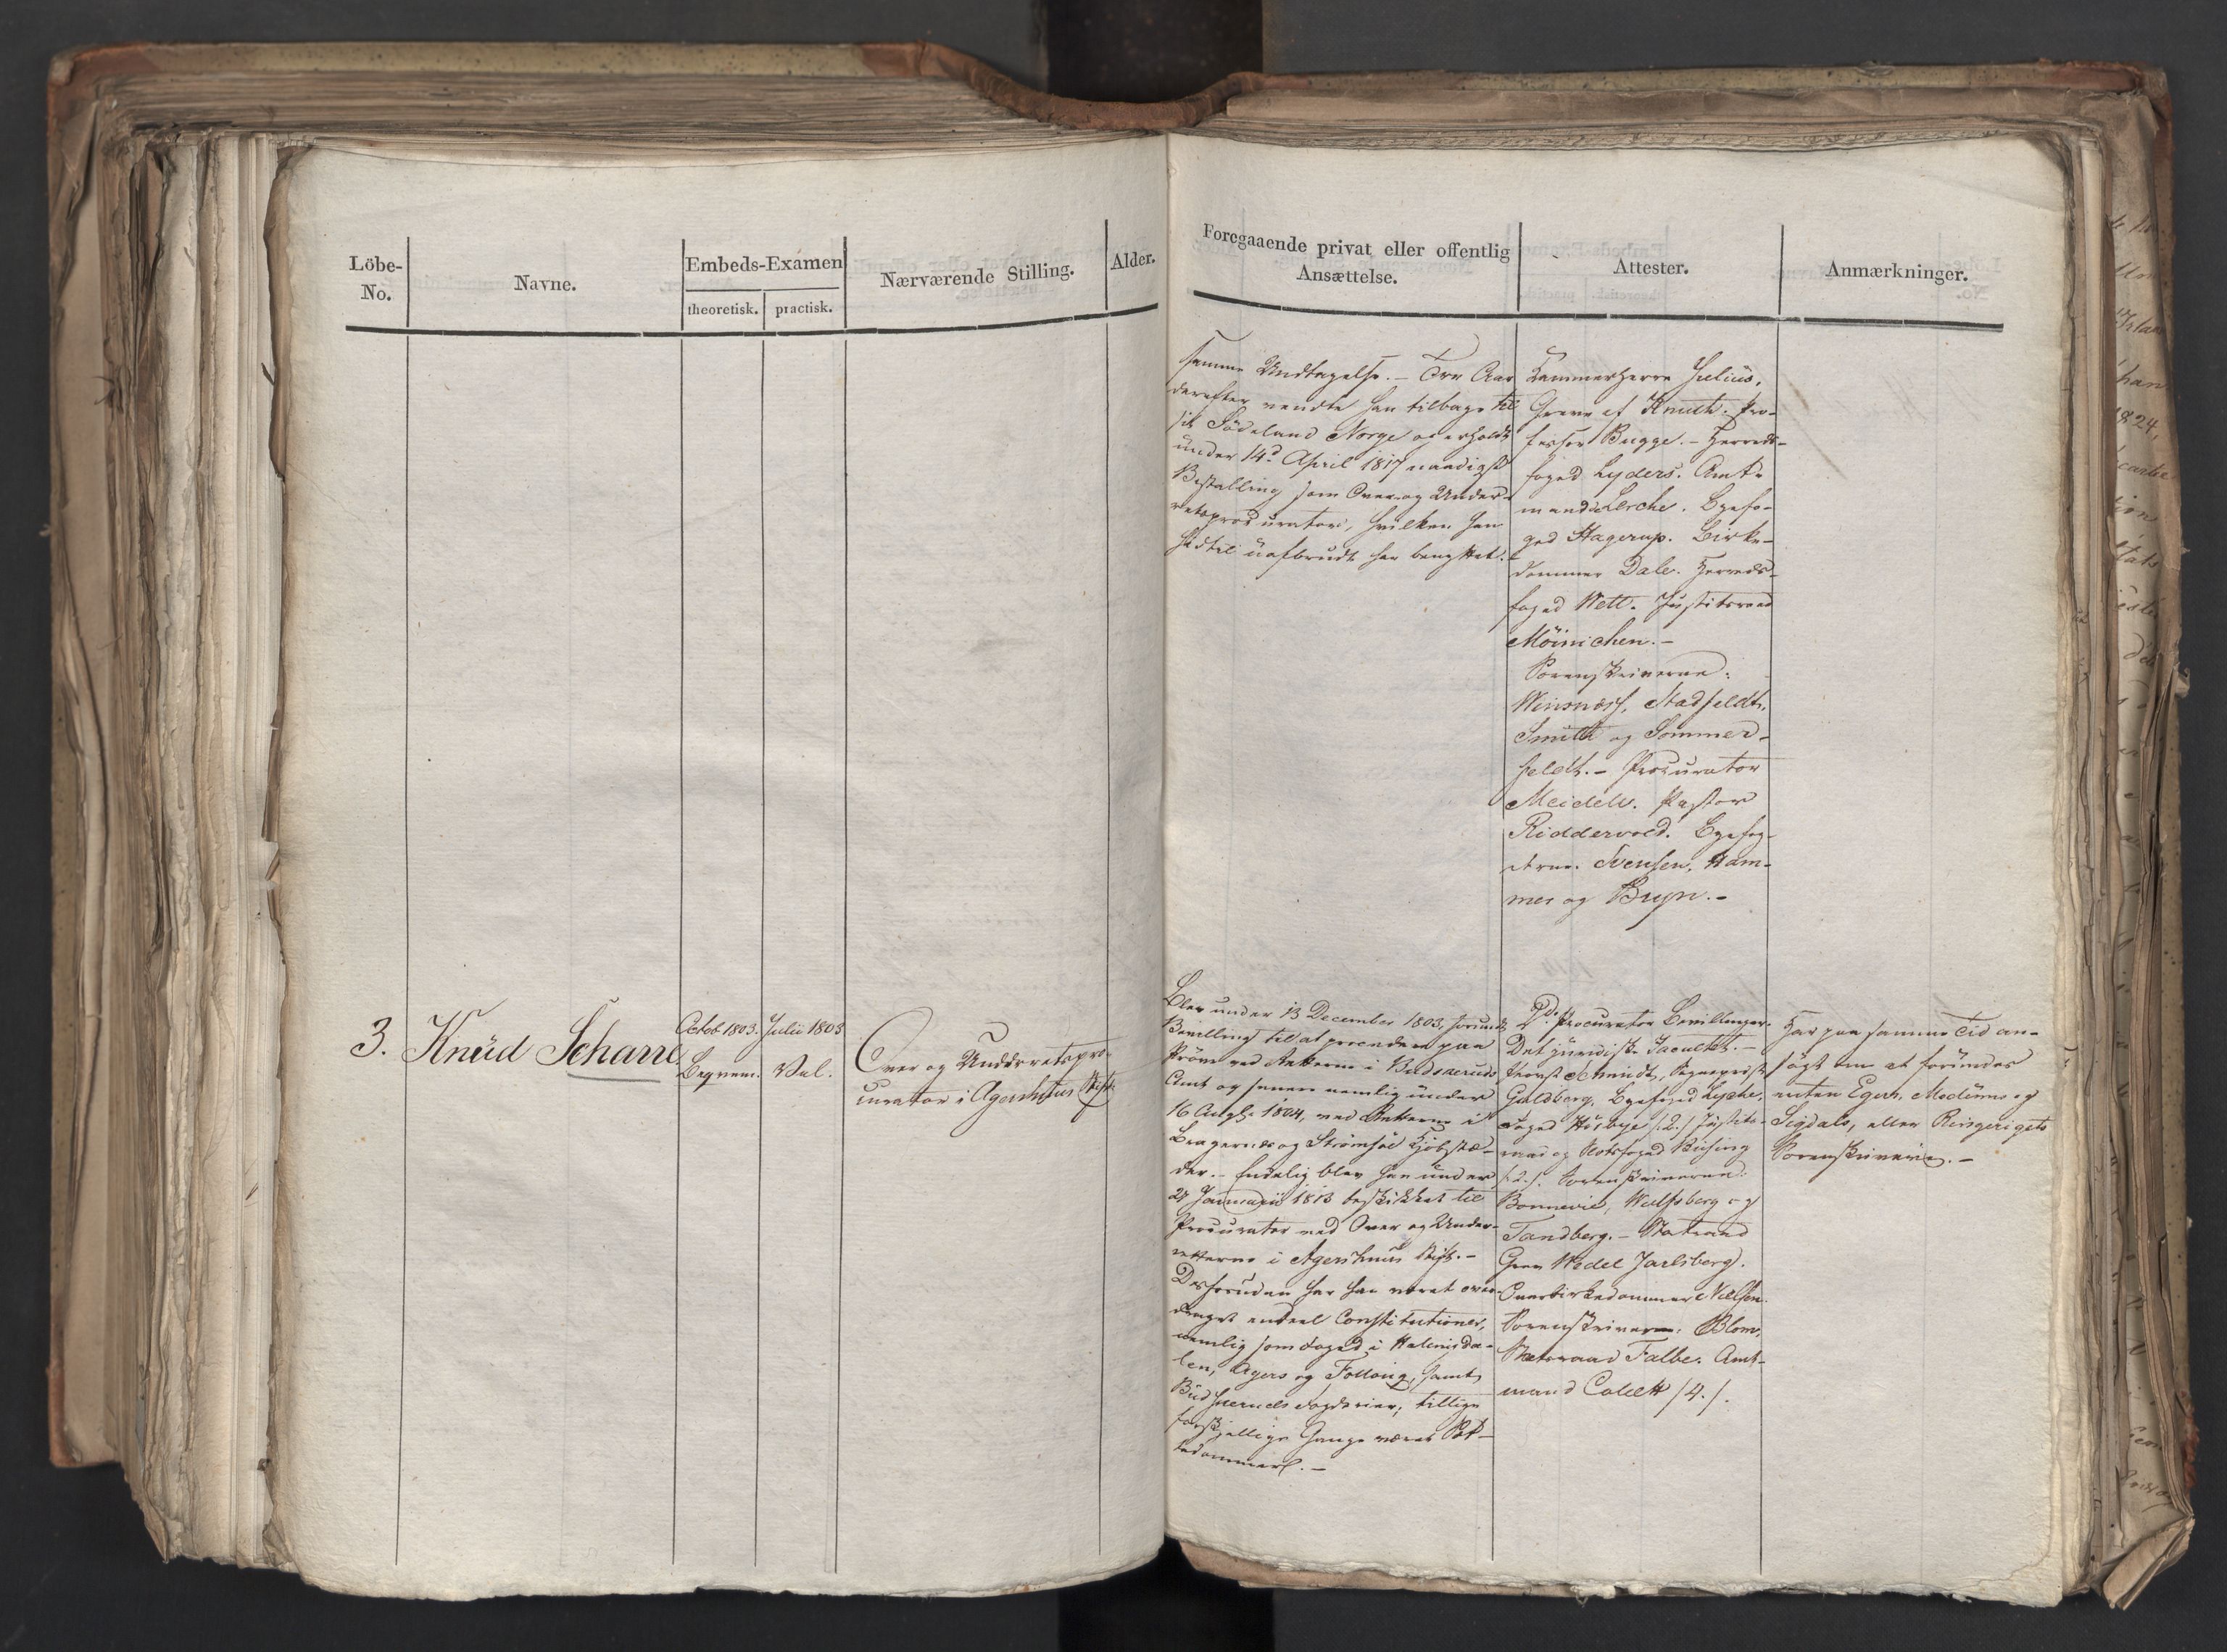 Löbe-
No.
Navne.
Embeds-Examen
theoretisk.
practisk.
Nærværende Stilling.
Alder.
Foregaaende privat eller offentlig
Ansættelse.
Attester.
Anmærkninger.
samme Undtagelse. – Tre Aar
derefter vendte han tilbage til
sit Födeland Norge og erholdt
under 14d April 1817 naadigst
Bestalling som Over- og Under-
retsprocurator, hvilken han
hidtil uafbrudt har benyttet.
Kammerherre Julius,
Greve af Knuth. Pro-
fessor Bugge. – Herreds-
foged Lyders. Amt-
mand Lerche. Byefo-
ged Hagerup. Birke-
dommer Dale. Herreds-
foged Wett. Justitsraad
Möinichen. –
Sorenskriverne:
Winsnæss, Stadfeldt,
Smith og Sommer-
feldt. – Procurator
Meidell. Pastor
Riddervold. Byefog-
derne Svensen, Ham-
mer og Bryn. –
3.
Knud Scharre
Octob. 1803.
Beqvem.
Julii 1803
Vel.
Over og Underretspro-
curator i Agershuus Stift.
Blev under 13 December 1803, forundt
Bevilling til at procedere paa
Pröve ved Retterne i Budskeruds
Amt og senere nemlig under
16 Augst. 1804, ved Retterne i
Bragernæs og Strömsöe Kjöbstæ-
der. – Endelig blev han under
21 Januarii 1813 beskikket til
Procurator ved Over og Under-
retterne i Agershuus Stift. –
Desforuden har han været over-
draget endeel Constitutioner,
nemlig som Foged i Hallingda-
len, Agers og Follous, samt
Budskeruds Fogderier, tillige
forskjellige Gange været Sæt-
tedommer. –
2de Procurator Bevillinger.
Det juridiske Facultet. –
Provst Schmidt, Sognepræst
Guldberg. Byefoged Lyche,
Foged Husbye /2./ Justits-
raad og Slotsfoged Büsing
/2./. Sorenskriverne:
Bonnevie, Wulfsberg og
Tandberg. – Statsraad
Grev Wedel Jarlsberg.
Overbirkedommer Nielsen.
Sorenskriver Blom.
Statsraad Falbe. Amt-
mand Collett /4./.
Har paa samme Tid an-
sögt om at forundes
enten Egers, Modums og
Sigdals, eller Ringerigets
Sorenskriverie. –